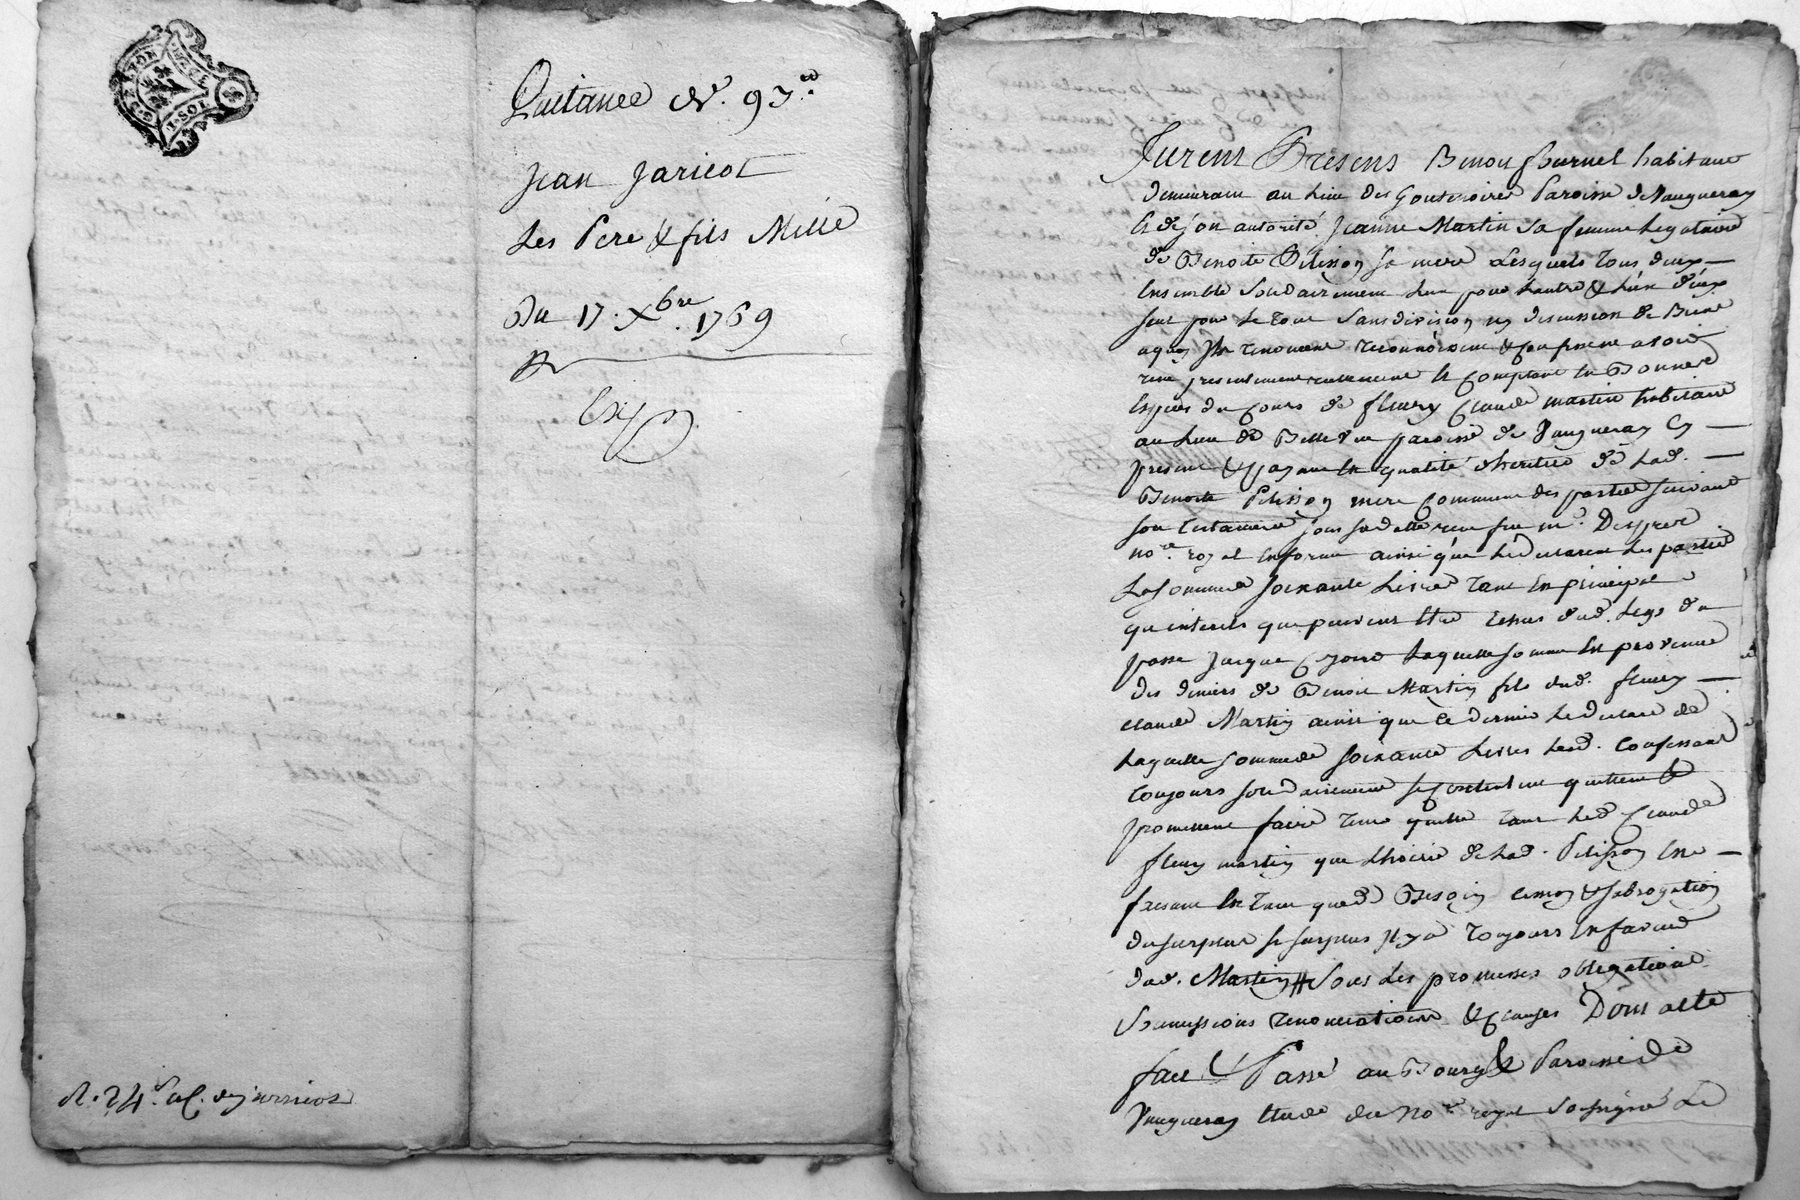 G. DE LYON
1. SOL
Quitance
Jean Jaricot
Les Pere & fils Millé
Du 17. Xbre. 1769
Exp
Furent Presens Benoit fournel habitant
demeurant au lieu des Goutenoires Paroisse de Vaugneray
& de son autorité Jeanne Martin sa femme Legataire
de Benoite Pelisson sa mere Lesquels tous deux
Ensemble Solidairement Lun pour Lautre & Lun d'eux
seul pour Le tout sans division ny discussion de Biens
aquoy Ils renoncent reconnoissent & confessent avoir
reçu presentement reellement & comptant En Bonnes
Especes du cours de fleury Claude martin habitant
au Lieu de Bellevue paroisse de Vaugneray Cy
present & payant En qualité d'heritier de Lad.
Benoite Pelisson mere Commune des parties suivant
son testament reçu feu Me.
nore. royal En forme ainsi que Le declarent Les parties
La somme de soixante Livres tant En principal
qu'interets que peuvent Etre Echus dud. Legs du
passé jusque
des deniers de Benoit Martin fils dud. fleury
claude Martin ainsi que Ce dernier Le declare de
Laquelle somme de soixante Livres Lesd. Confessants
toujours solidairement se contentent quittent &
promettent faire tenir quitte tant Led. Claude
fleury martin que L'hoirie de Lad. Pelisson
faisant En tant que de Besoin & subrogation
du surplus si surplus Il y a toujours En faveur
dud. Martin Sous Les promesses obligations
soumissions renonciations & clauses Dont acte
fait & Passé au Bourg & Paroisse de
Vaugneray Etude du Nore. royal Soussigné Le